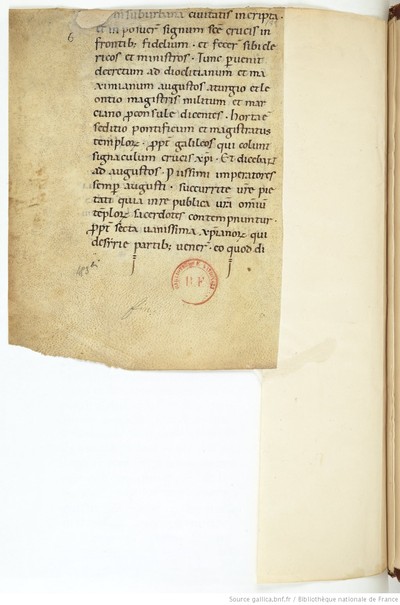 in suburbana civitatis in cripta ·
et in posuer̄ signum sc̄e crucis in
frontib; fidelium · et fecer̄ sibi cle
ricos et ministros · Tunc ꝑuenit
decretum ad dioclitianum et ma
ximianum augustos a turgio et le
ontio magistris militum et mar
ciano ꝓconsule dicentes · hortae
seditio pontificum et magistratus
templorꝝ · ꝓpt̄ galileos qui colunt
signaculum crucis xp̄i · Et dicebant
ad augustos · Piissimi imperatores
semp̄ augusti · succurrite ur̄e pie
tati quia in re publica ur̄a omiū
tēplorꝝ sacerdotes contempnuntur ·
ꝓpt̄ secta uanissima xp̄ianorꝝ qui
de sirie partib; uener̄ · eo quod di
B F
fin
Source gallica.bnf.fr / Bibliothèque nationale de France